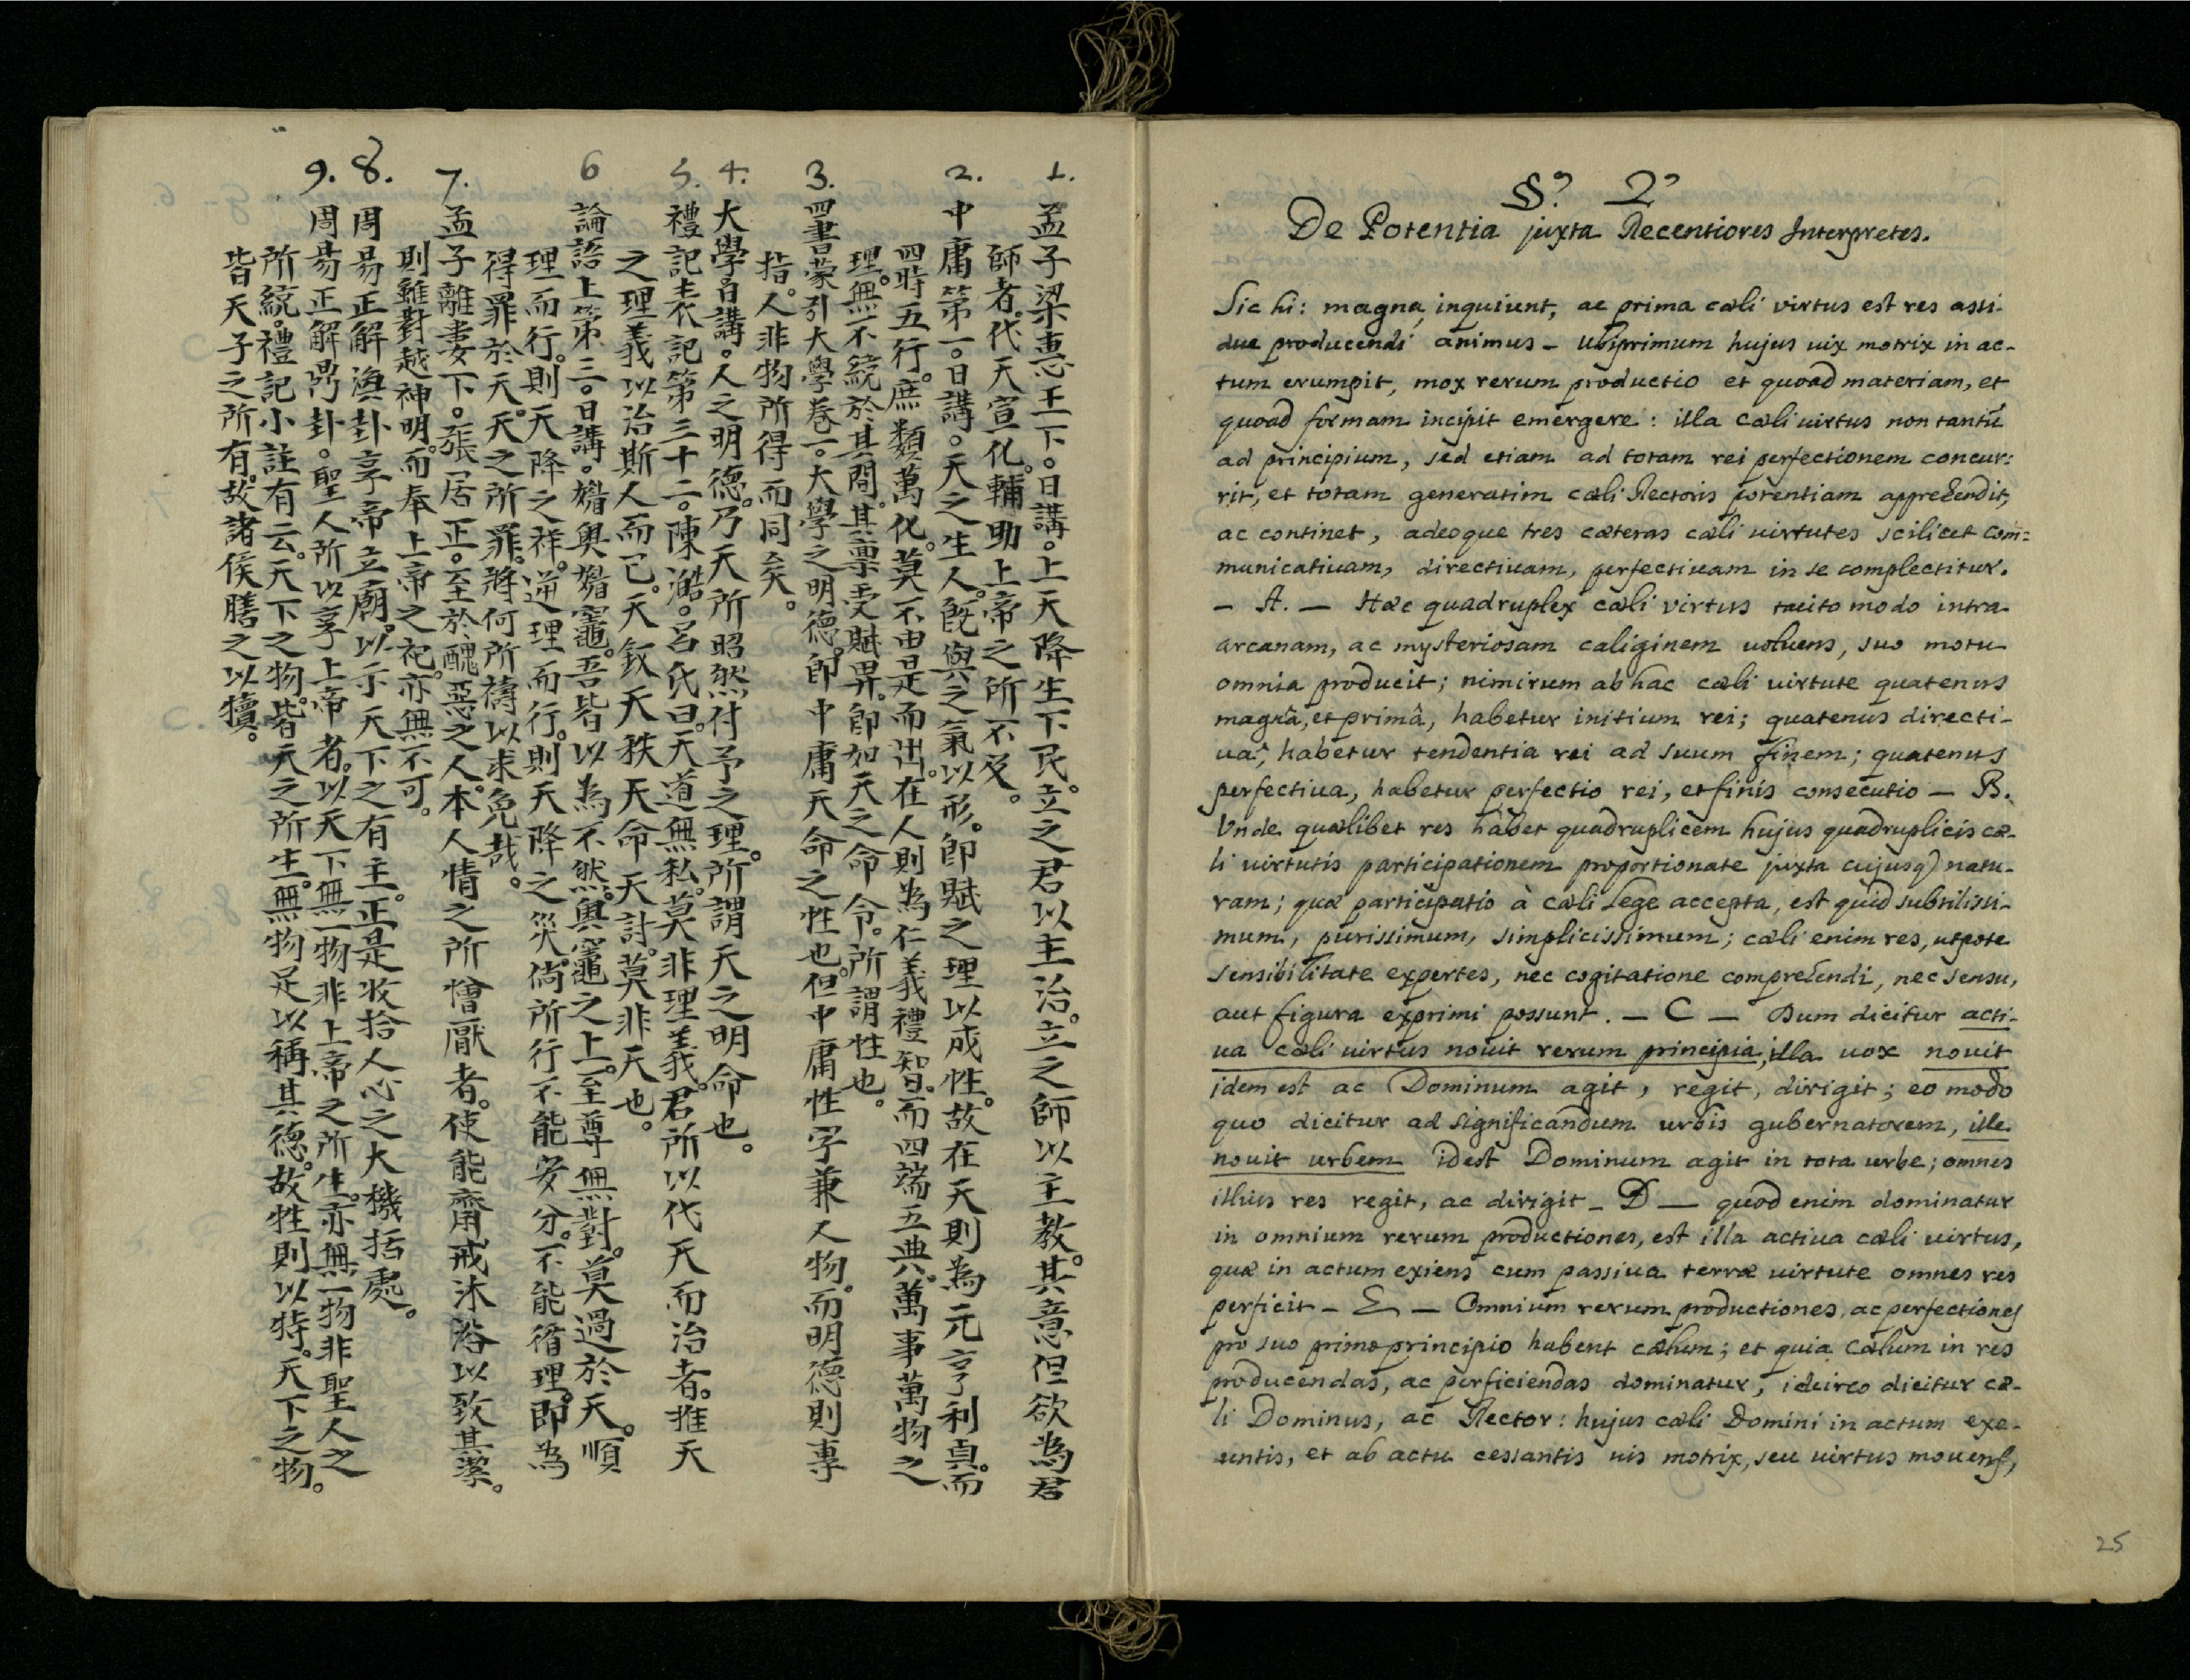 1.
孟子梁惠王下。日講。上天降生下民。立之君以主治。立之師以主教。其意但欲為君
師者。代天宣化。輔助上帝之所不及。
2.
中庸第一。日講。天之生人。旣與之氣以形。卽賦之理以成性。故在天則為元亨利貞。而
四時五行。庶類萬化。莫不由是而出。在人則為仁義禮智。而四端五典。萬事萬物之
理。無不統於其間。其稟受賦畀。卽如天之命令。所謂性也。
3.
四書蒙引大學卷一。大學之明德。卽中庸天命之性也。但中庸性字兼人物。而明德則專
指。人非物所得而同矣。
4.
大學日講。人之明德。乃天所昭然付予之理。所謂天之明命也。
5.
禮記表記第三十二。陳澔。呂氏曰。天道無私。莫非理義。君所以代天而治者。推天
之理義以治斯人而已。天叙天秩天命天討。莫非天也。
6
論語上第三。日講。媚奧媚竈。吾皆以為不然。奧竈之上。至尊無對。莫過於天。順
理而行。則天降之祥。逆理而行。則天降之災。倘所行不能安分。不能循理。卽為
得罪於天。天之所罪。將何所禱以求免哉。
7.
孟子離婁下。張居正。至於醜惡之人。本人情之所憎厭者。使能齋戒沐浴以致其潔。
則雖對越神明。而奉上帝之祀。亦無不可。
8.
周易正解渙卦享帝立廟。以示天下之有主。正是收拾人心之大機括處。
9.
周易正解鼎卦。聖人所以享上帝者。以天下無一物非上帝之所生。亦無一物非聖人之
所統。禮記小註有云。天下之物。皆天之所生。無物足以稱其德。故牲則以特。天下之物。
皆天子之所有。故諸侯膳之以犢。
§º 2º
De Potentia juxta Recentiores Interpretes.
Sic hi: magna, inquiunt, ac prima cæli virtus est res assi-
due producendi animus - Ubiprimum hujus vix motrix in ac-
tum erumpit, mox rerum productio et quoad materiam, et
quoad formam incipit emergere: illa cæli virtus non tantũ
ad principium, sed etiam ad totam rei perfectionem concur:
rit, et totam generatim cæli Rectoris potentiam apprehendit,
ac continet, adeoque tres cæteras cæli virtutes scilicet com:
municativam, directivam, perfectivam in se complectitur.
- A. - Hæc quadruplex cæli virtus tacito modo intra
arcanam, ac mysteriosam caliginem volvens, suo motu
omnia producit; nimirum ab hac cæli virtute quatenus
magnâ, et primâ, habetur initium rei; quatenus directi-
va, habetur tendentia rei ad suum finem; quatenus
perfectiva, habetur perfectio rei, et finis consecutio - B.
Unde quælibet res habet quadruplicem hujus quadruplicis cæ-
li virtutis participationem proportionate juxta cujusq) natu-
ram; quæ participatio à cæli Lege accepta, est quid subtilissi-
mum, purissimum, simplicissimum; cæli enim res, utpote
sensibilitate expertes, nec cogitatione comprehendi, nec sensu,
aut figura exprimi possunt. - C - Dum dicitur acti-
va cæli virtus novit rerum principia, illa vox novit
idem est ac Dominum agit, regit, dirigit; eo modo
quo dicitur ad significandum urbis gubernatorem, ille
novit urbem idest Dominum agit in tota urbe; omnes
illius res regit, ac dirigit - D - quod enim dominatur
in omnium rerum productiones, est illa activa cæli virtus,
quæ in actum exiens cum passiva terræ virtute omnes res
perficit - E - Omnium rerum productiones, ac perfectiones
pro suo primo principio habent cælum; et quia cælum in res
producendas, ac perficiendas dominatur, idcirco dicitur cæ-
li Dominus, ac Rector: hujus cæli Domini in actum exe-
untis, et ab actu cessantis vis motrix, seu virtus movens,
25